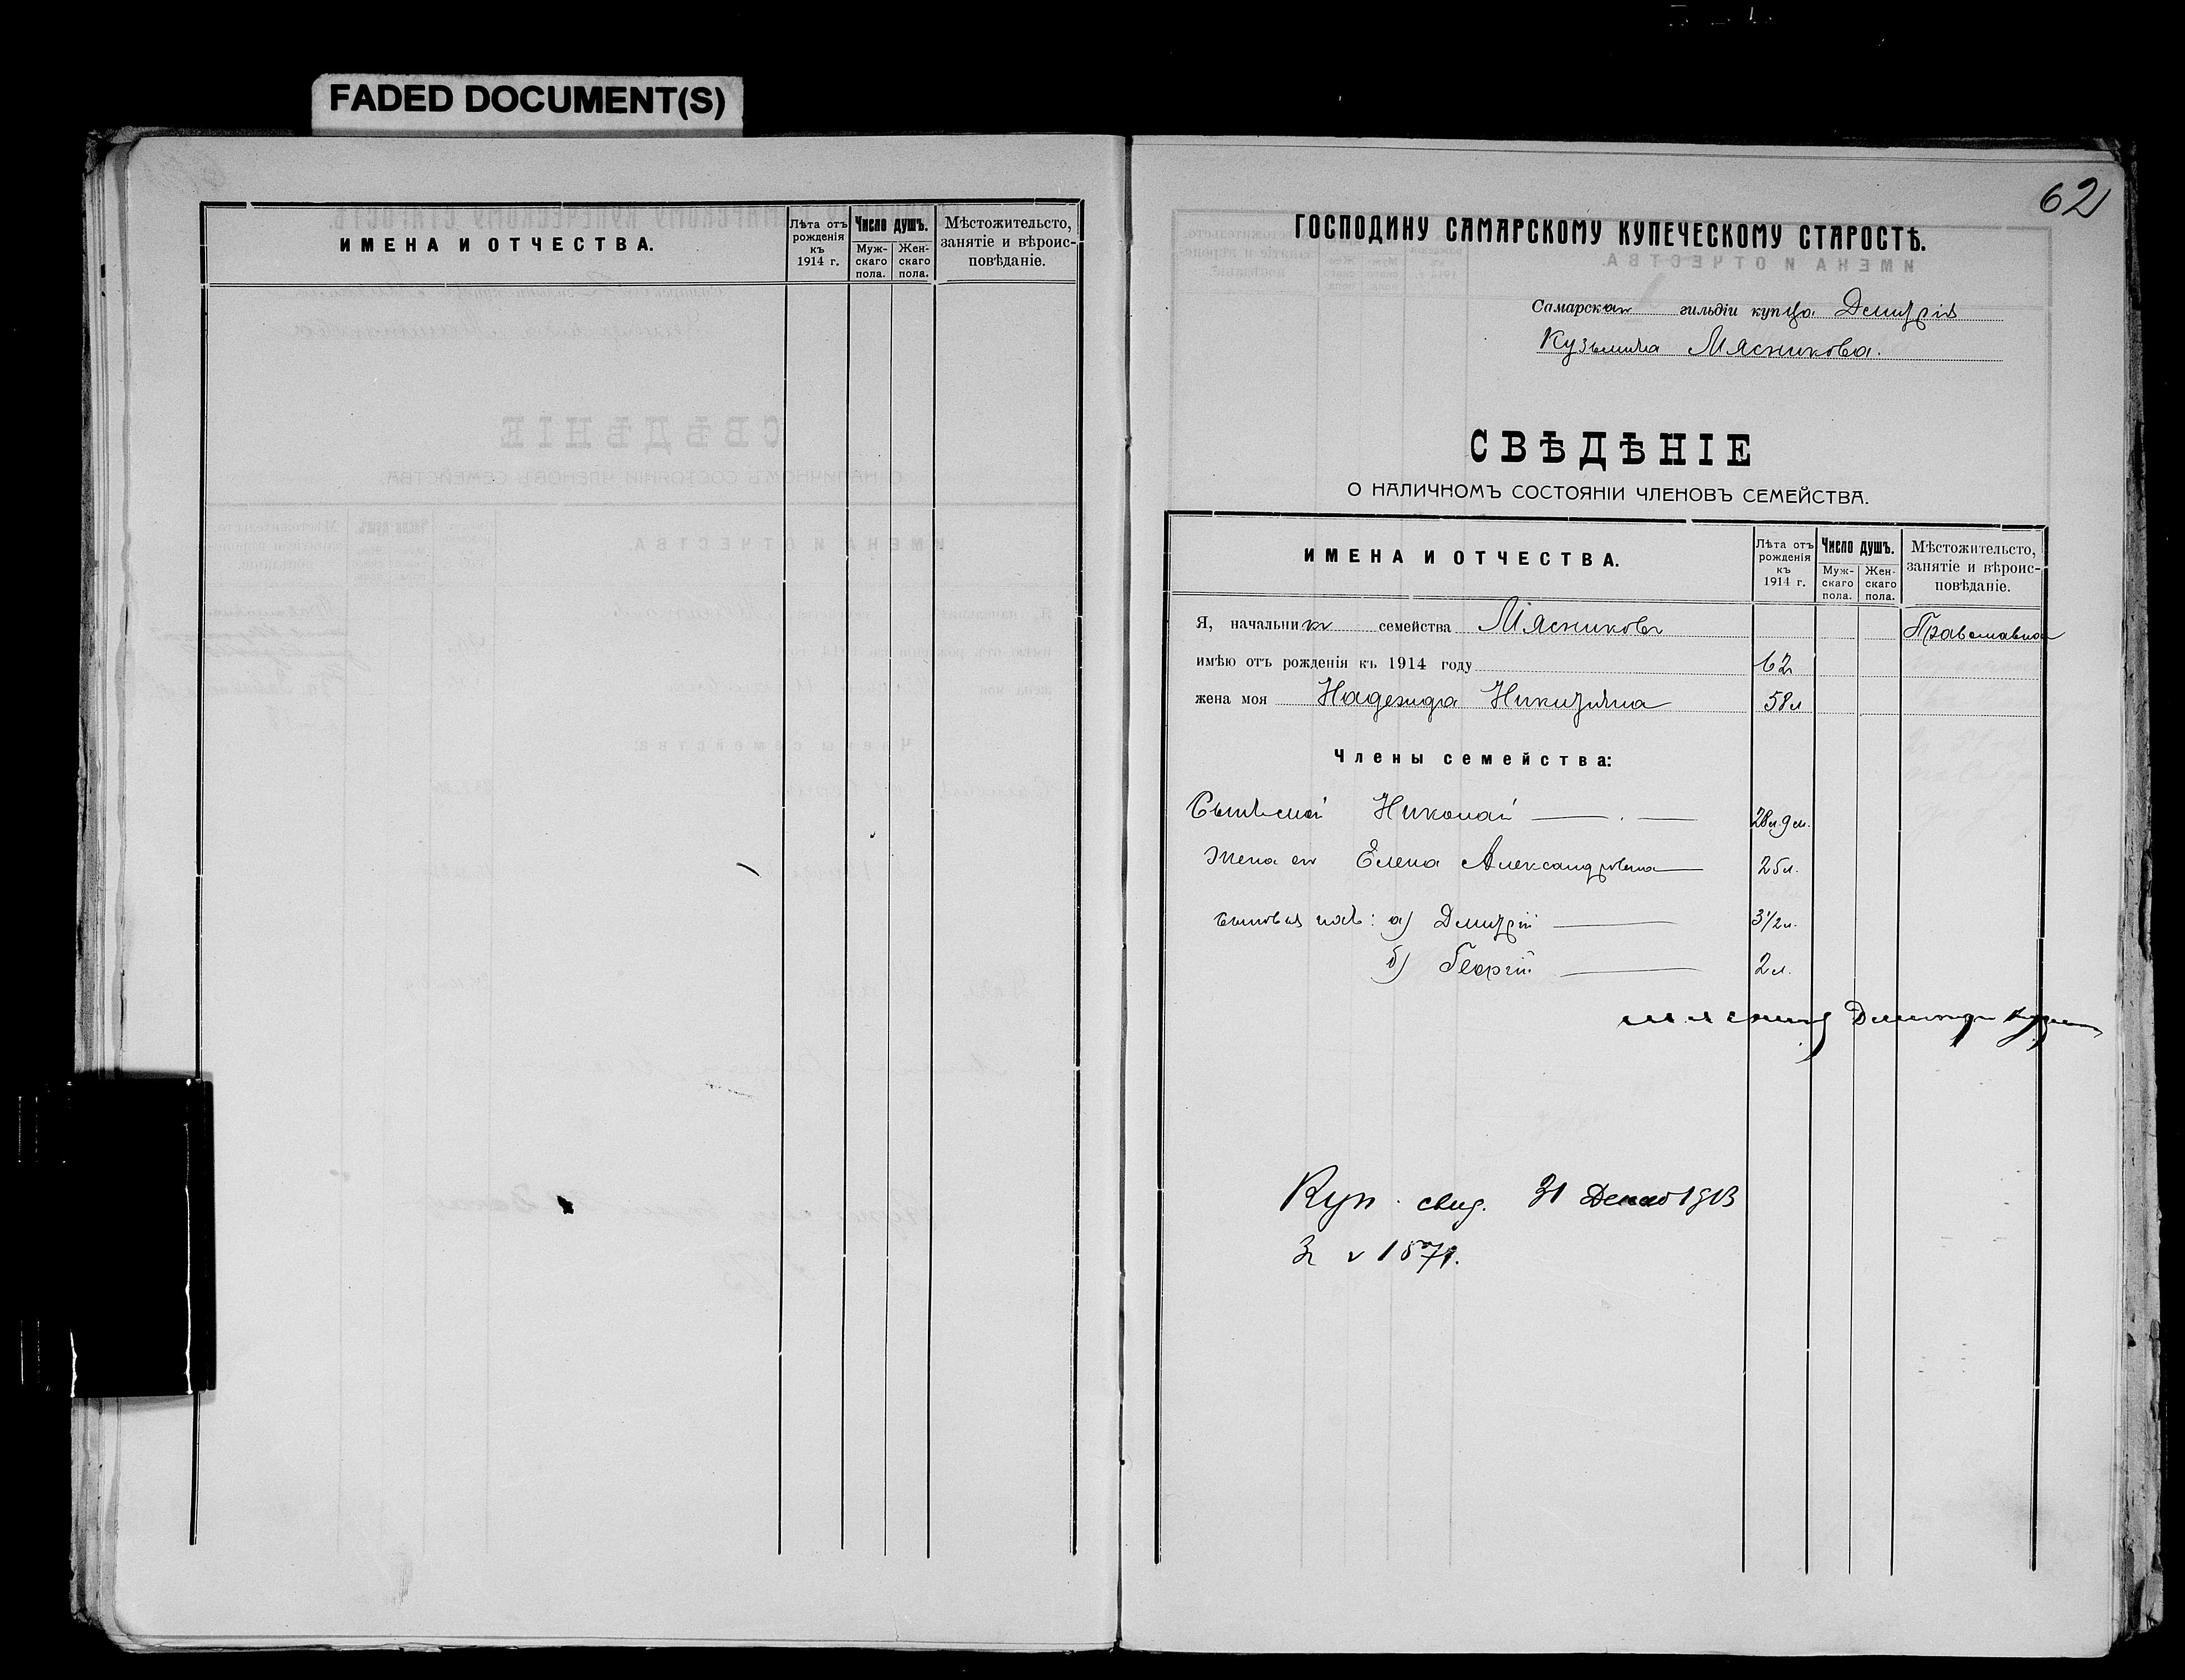 FADED DOCUMENT(S)
ИМЕНА И ОТЧЕСТВА.
Лѣта отъ рожденія къ 1914 г.
Число душъ.
Муж-скаго пола.
Жен-скаго пола.
Мѣстожительсто, занятіе и вѣроис-повѣданіе.
62
ГОСПОДИНУ САМАРСКОМУ КУПЕЧЕСКОМУ СТАРОСТѢ.
Самарскаго гильдіи купца Дмитрія
Кузьмича Мясникова.
СВѢДѢНІЕ
О НАЛИЧНОМЪ СОСТОЯНІИ ЧЛЕНОВЪ СЕМЕЙСТВА.
ИМЕНА И ОТЧЕСТВА.
Лѣта отъ рожденія къ 1914 г.
Число душъ.
Муж-скаго пола.
Жен-скаго пола.
Мѣстожительсто, занятіе и вѣроис-повѣданіе.
Я, начальникъ семейства Мясниковъ Православное
имѣю отъ рожденія къ 1914 году 62
жена моя Надежда Никитична 58 л
Члены семейства:
Сынъ мой Николай 28 л. 9 м.
Жена его Елена Александровна 25 л.
Сыновья ихъ: а) Дмитрій 3 1/2 л.
б) Георгій 2 л.
Куп. свид. 31 Декаб 1913